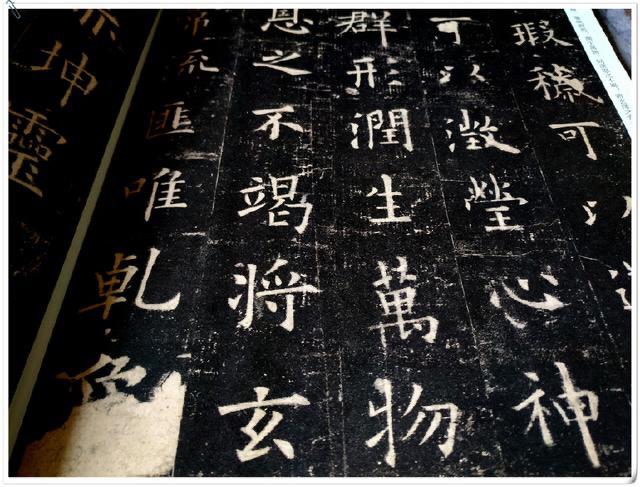 瑕穢可以
可以澂瑩心神
群形潤生萬物
恩之不竭將玄
常流匪唯乾象
亦坤靈